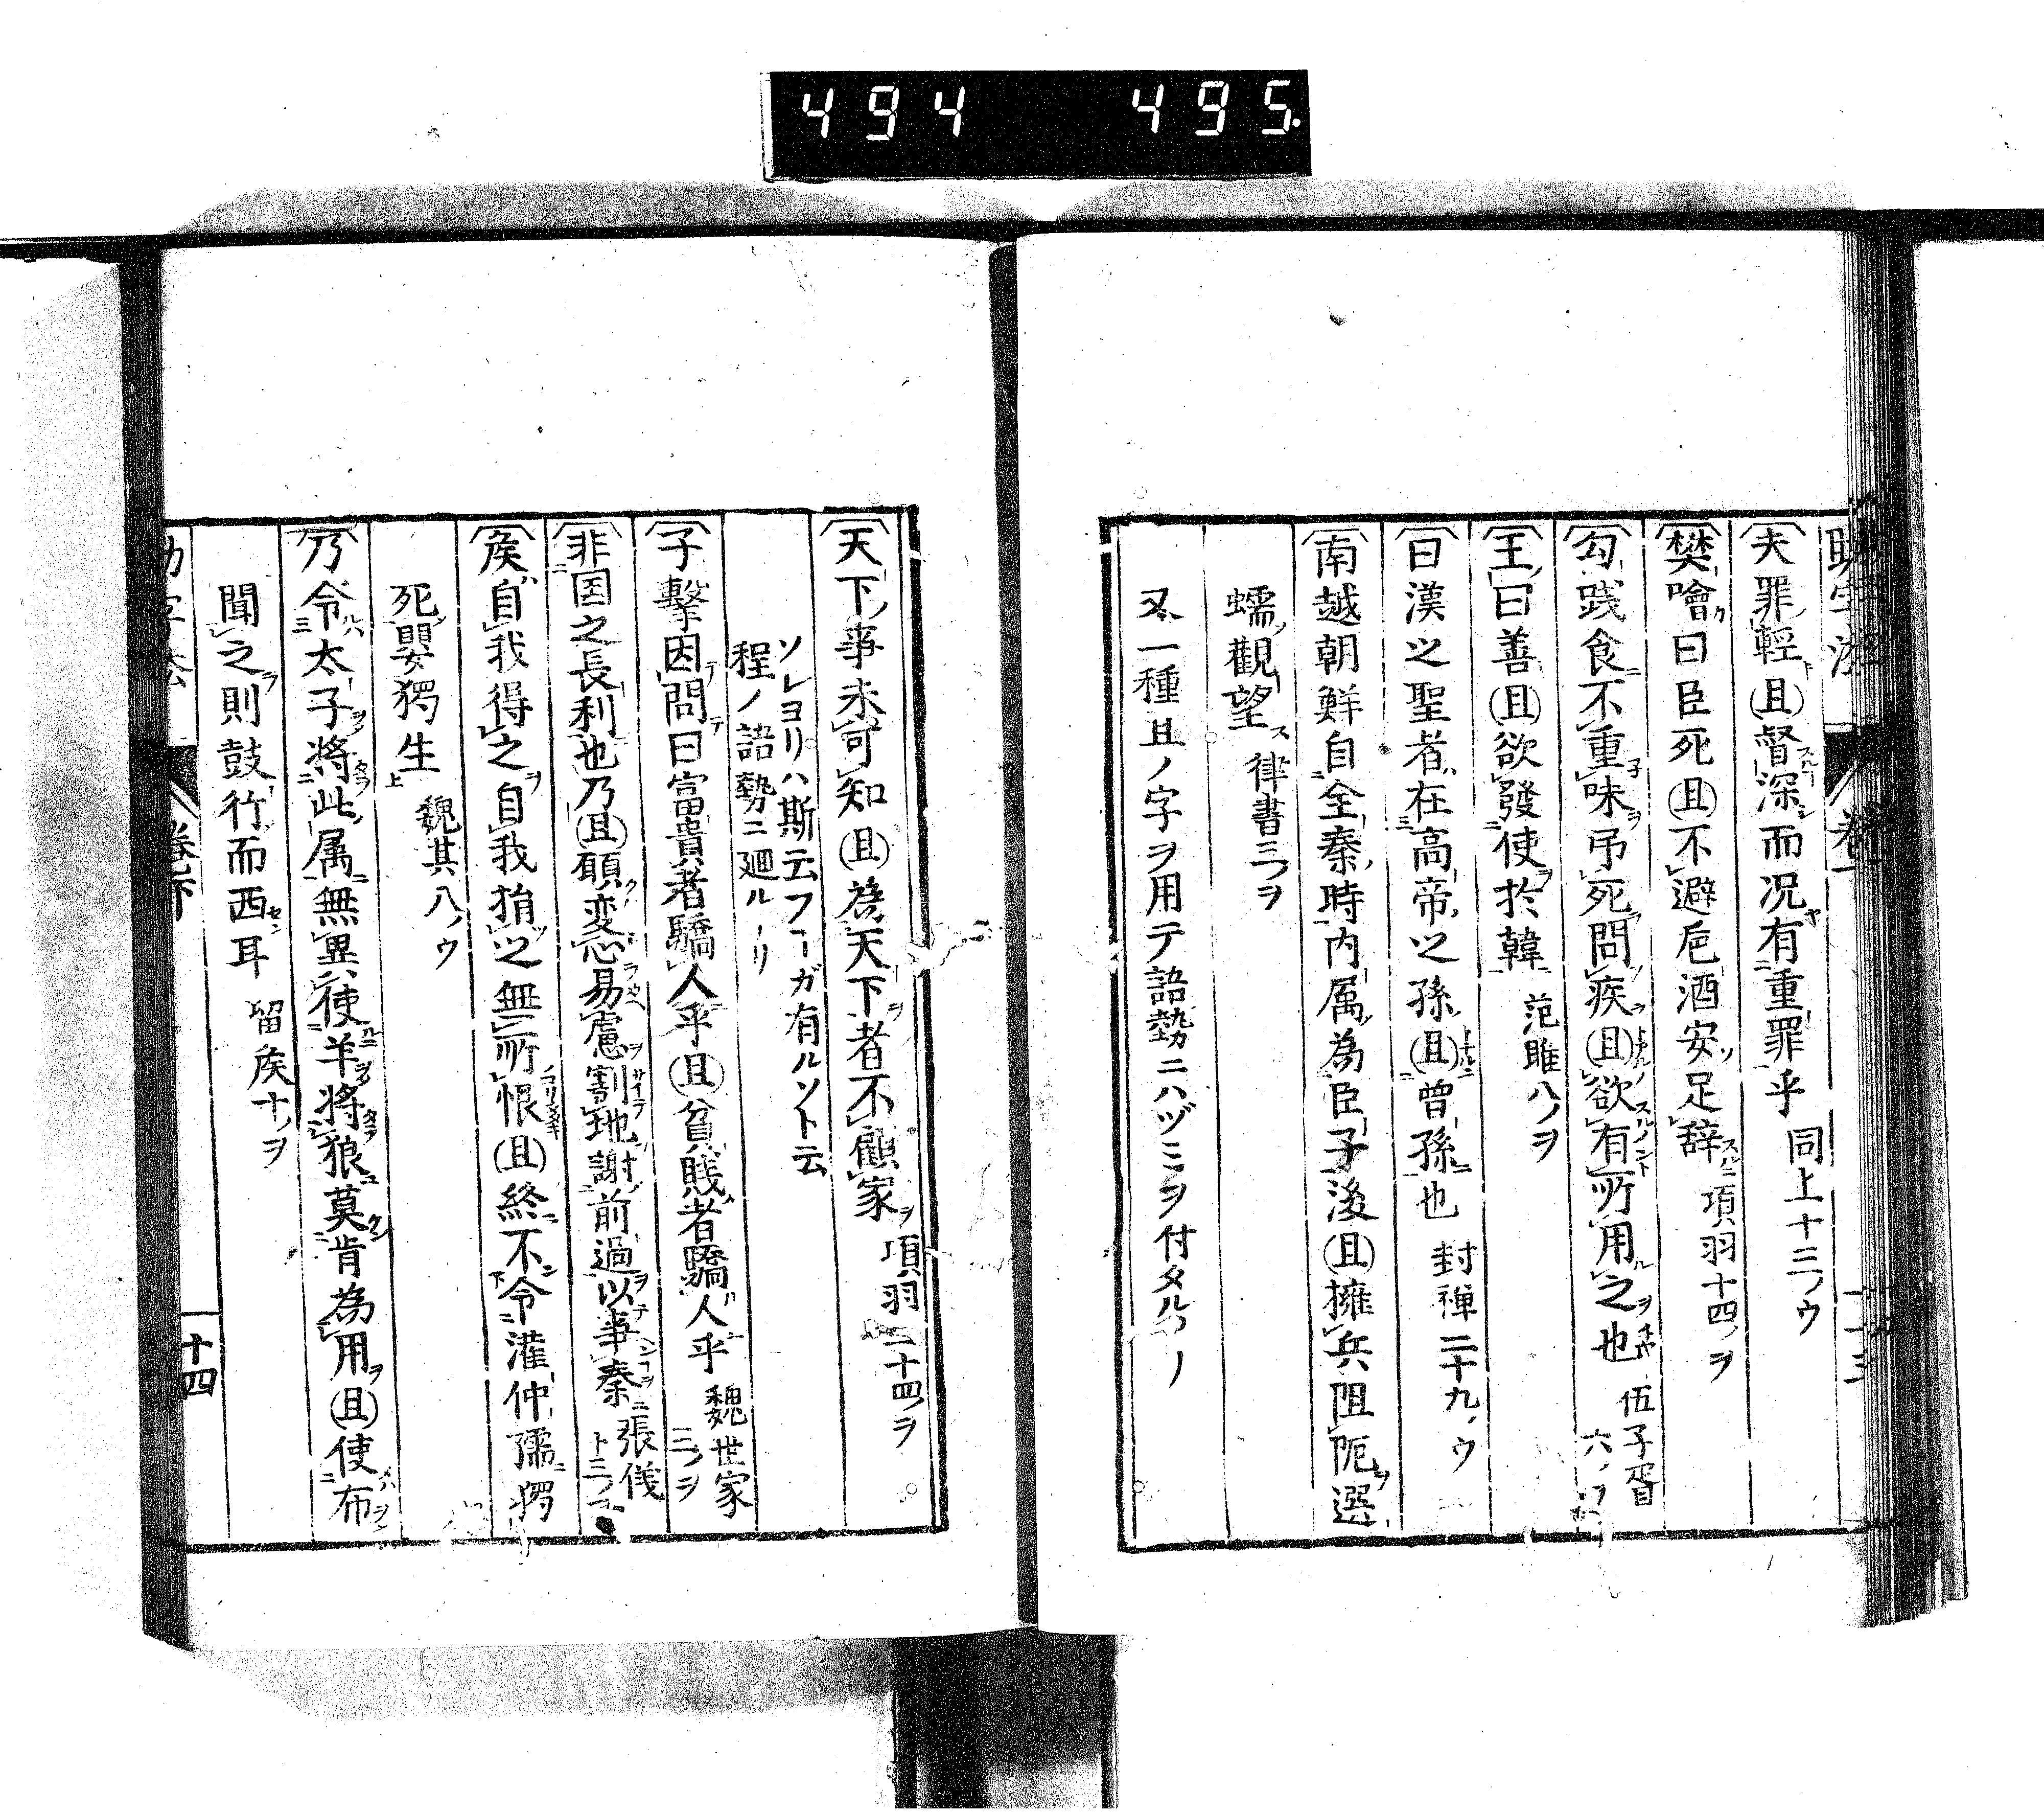 494 495.
夫罪輕且督深而况有重罪乎 同上十三ノウ
樊噲曰臣死且不避巵酒安足辞 項羽十四ノヲ
勾践食不重味弔死問疾且欲有所用之也 伍子胥六ノヲ
王曰善且欲發使於韓 范雎八ノヲ
曰漢之聖者在高帝之孫且曾孫也 封禅二十九ノウ
南越朝鮮自全秦時内属為臣子後且擁兵阻阨選
蠕觀望 律書三ノヲ
又一種且ノ字ヲ用テ語勢ニハヅミヲ付タルヿノ
天下ノ事未可知且為天下者不顧家 項羽二十四ノヲ
ソレヨリハ斯云フヿガ有ルソト云
程ノ語勢ニ廻ルヿリ
子擊因問曰富貴者驕人乎且貧賎者驕人乎 魏世家三ノヲ
非国之長利也乃且願変心易慮割地謝前過以事秦 張儀十三ノ
矦自我得之自我捐之無所恨且終不令灌仲孺獨
死嬰獨生 魏其八ノウ
乃令太子将此属無異使羊将狼莫肯為用且使布
聞之則鼓行而西耳 留矦十ノヲ
巻下
十四